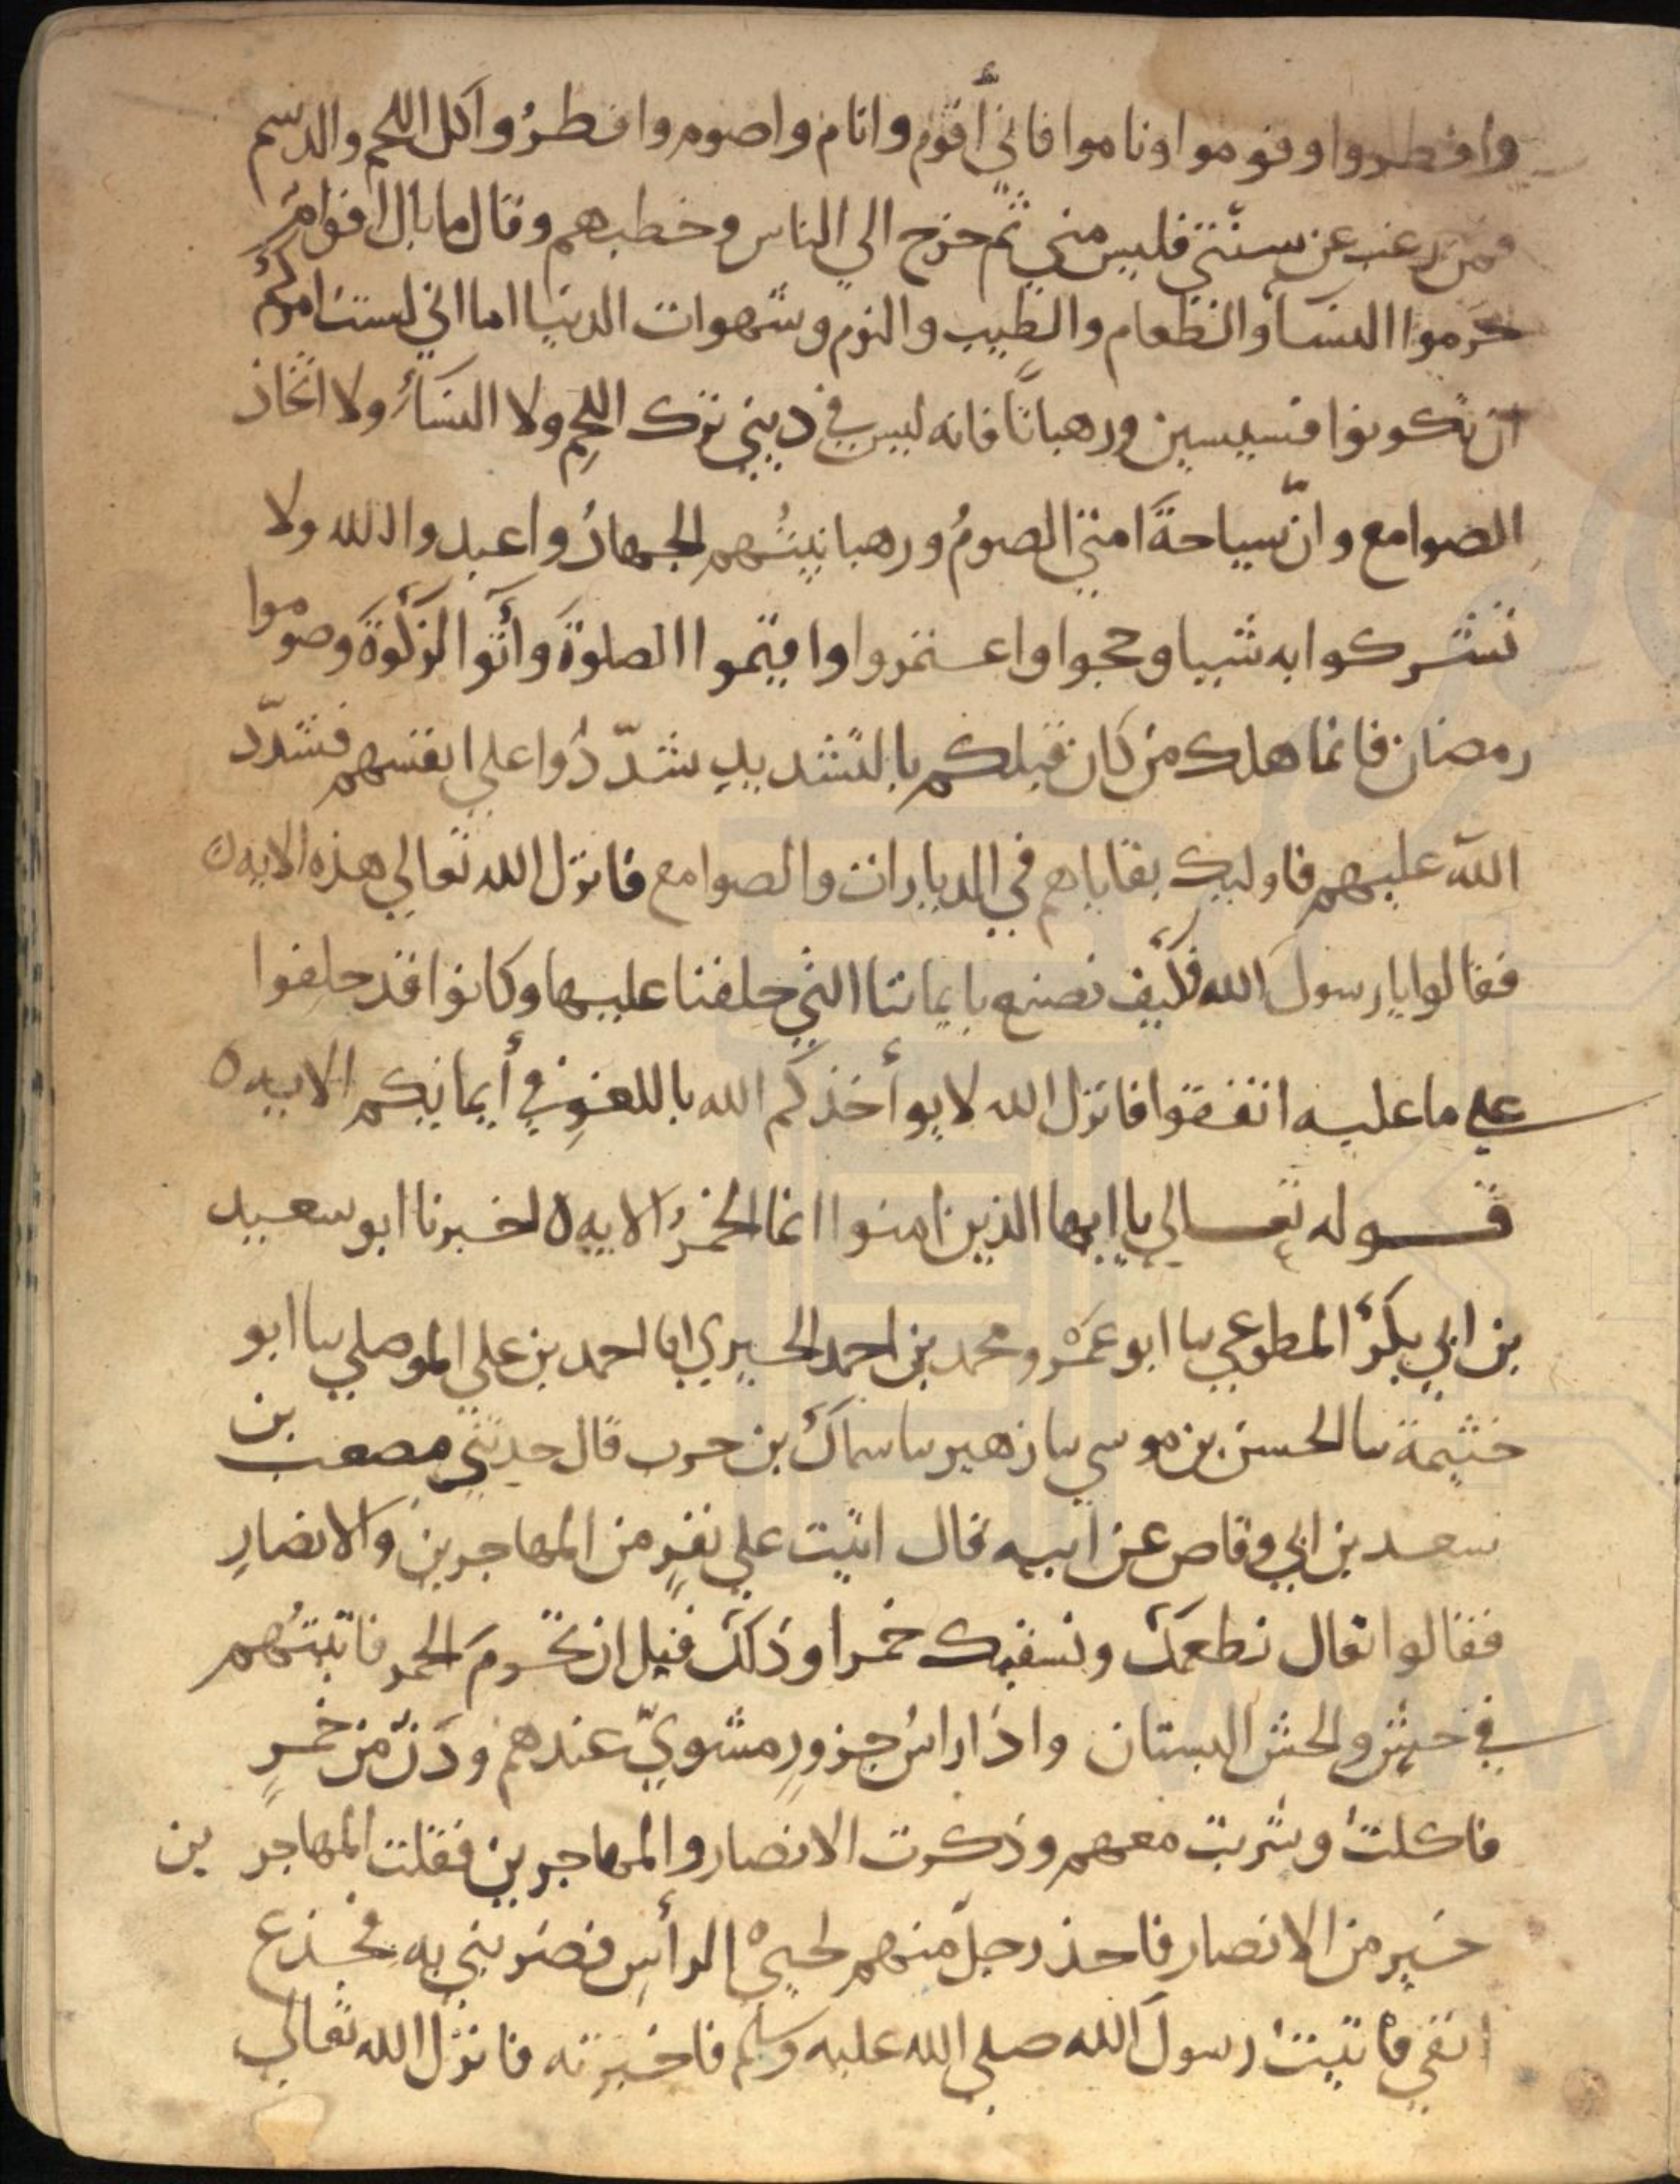 وافطروا وقوموا وناموا فاني أقوم وانام واصوم وافطرُ وآكل اللحم والدسم
فمن رغب عن سنّتي فليس مني ثمّ خرج الي الناس وخطبهم وقال ما بال اقوامٍ
حرّموا النسا والطعام والطيب والنوم وشهوات الدنيا اما اني لست امركم
ان تكونوا قسيسين ورهبانًا فانه ليس في ديني ترك اللحمِ ولا النساءِ ولا اتخاذ
الصوامع وانّ سياحةَ امتي الصومُ ورهبانيتُهم الجهادُ واعبدوا الله ولا
تشركوا به شييا وحجوا واعتمروا واقيموا الصلوةَ وآتوا الزكوةَ وصوموا
رمضان فانما هلك من كان قبلكم بالتشديدِ شدّدُوا علي انفسهم فشدّد
الله عليهم فاوليك بقاياهم في الديارات والصوامع فانزل الله تعالي هذه الايه ه
فقالوا يا رسولَ الله فكيف نصنع بايماننا التي حلفنا عليها وكانوا قد حلفوا
علي ما عليه اتفقوا فانزل الله لا يوأخذكم الله باللغوِ في أيمانكم الايه ه
قوله تعالي يا ايها الذين امنوا انما الخمرُ الايه ه اخبرنا ابو سعيد
بن ابي بكرٍ المطوعي سا ابو عمْرو محمد بن احمد الحيري انا احمد بن علي الموصلي سا ابو
خثيمة سا الحسن بن موسي سا زهير سا سماكُ بن حرب قال حدثني مصعب بن
سعد بن ابي وقاص عن ابيه قال اتيت علي نفرٍ من المهاجرين والانصارِ
فقالوا تعال نطعمكَ ونسقيك خمرا وذلك قبل ان تحرم الخمر فاتيتُهم
في حشٍ والحش البستان واذا راسُ جزورٍ مشويّ عندهم ودَنٌ من خمرٍ
فاكلتُ وشربت معهم وذكرت الانصار والمهاجرين فقلت المهاجرين
خير من الانصار فاخذ رجلٌ منهم لحييْ الرأسِ فضربني به فجذع
انفي فاتيتُ رسولَ الله صلي الله عليه وسلم فاخبرته فانزل الله تعالي